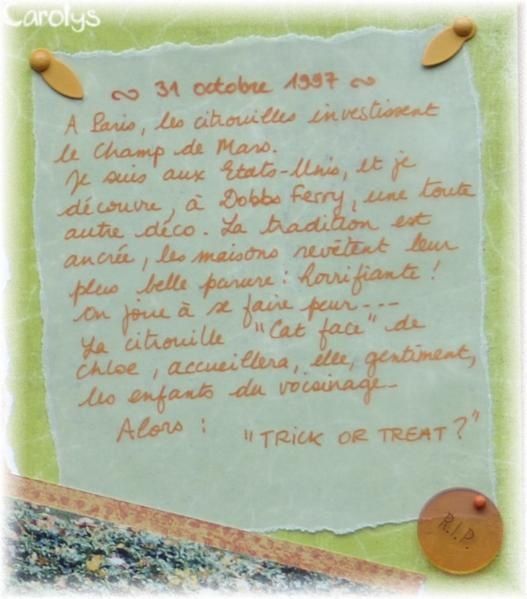 Carolys
~ 31 octobre 1997 ~
A Paris, les citrouilles investissent
le Champ de Mars.
Je suis aux Etats-Unis, et je
découvre, à Dobbs Ferry, une toute
autre déco. La tradition est
ancrée, les maisons revêtent leur
plus belle parure : horrifiante !
On joue à se faire peur...
La citrouille "Cat face" de
Chloe, accueillera, elle, gentiment,
les enfants du voisinage.
Alors : "TRICK OR TREAT ?"
R.I.P.